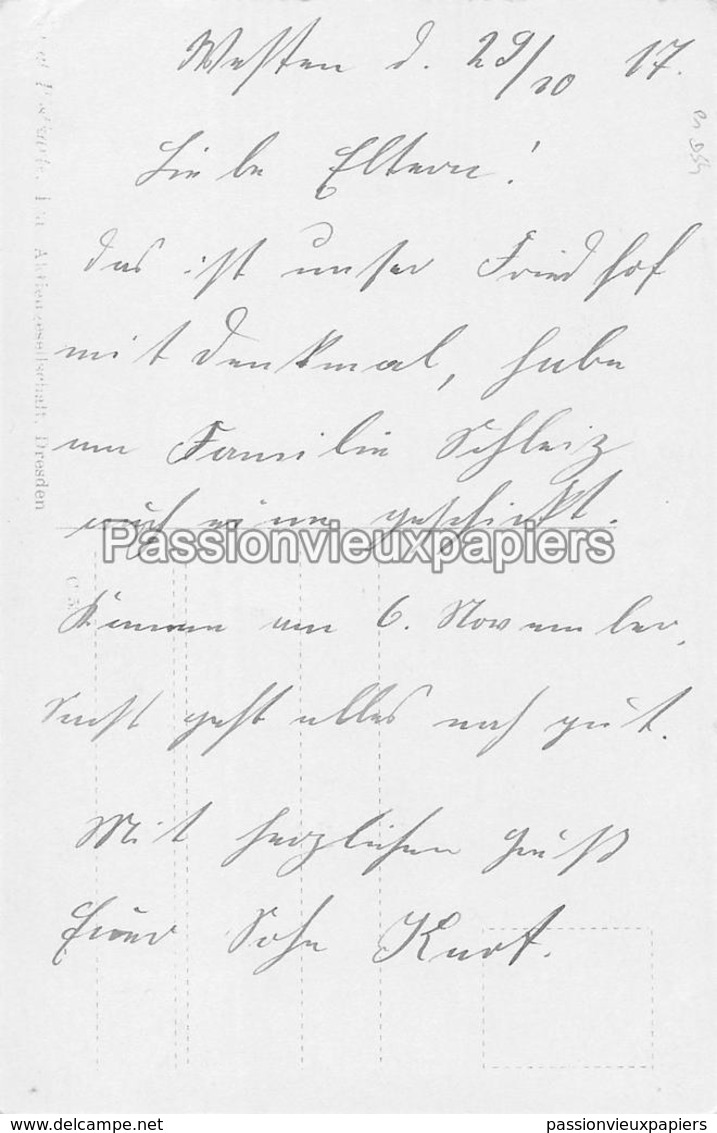 Westen d. 29/10 17.
Liebe Eltern!
das ist unser Friedhof
mit Denkmal, habe
an Familie Schleiz
auch einen geschickt.
Komme am 6. November,
Sonst geht alles noch gut.
Mit herzlichen Gruß
Euer Sohn Kurt.
Aktiengesellschaft, Dresden
Passionvieuxpapiers
delcampe.net
passionvieuxpapiers